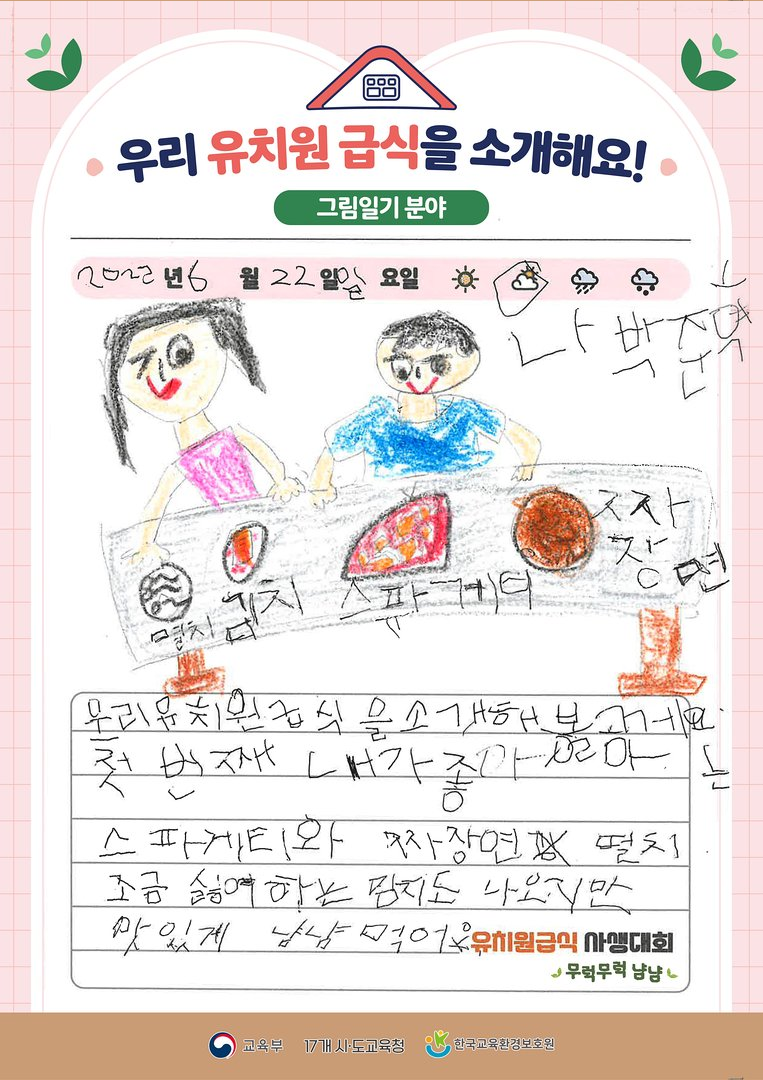 우리 유치원 급식을 소개해요!
그림일기 분야
2022 년 6 월 22 일 일 요일
나 박준혁
짜장면
멸치 김치 스파게티
우리유치원급식을소개해볼게요.
첫 번째 내가 좋아 하는
스파게티와 짜장면 멸치
조금 싫어하는 김치도 나오지만
맛있게 냠냠먹어요.
유치원급식 사생대회
무럭무럭 냠냠
교육부 17개 시·도교육청 한국교육환경보호원